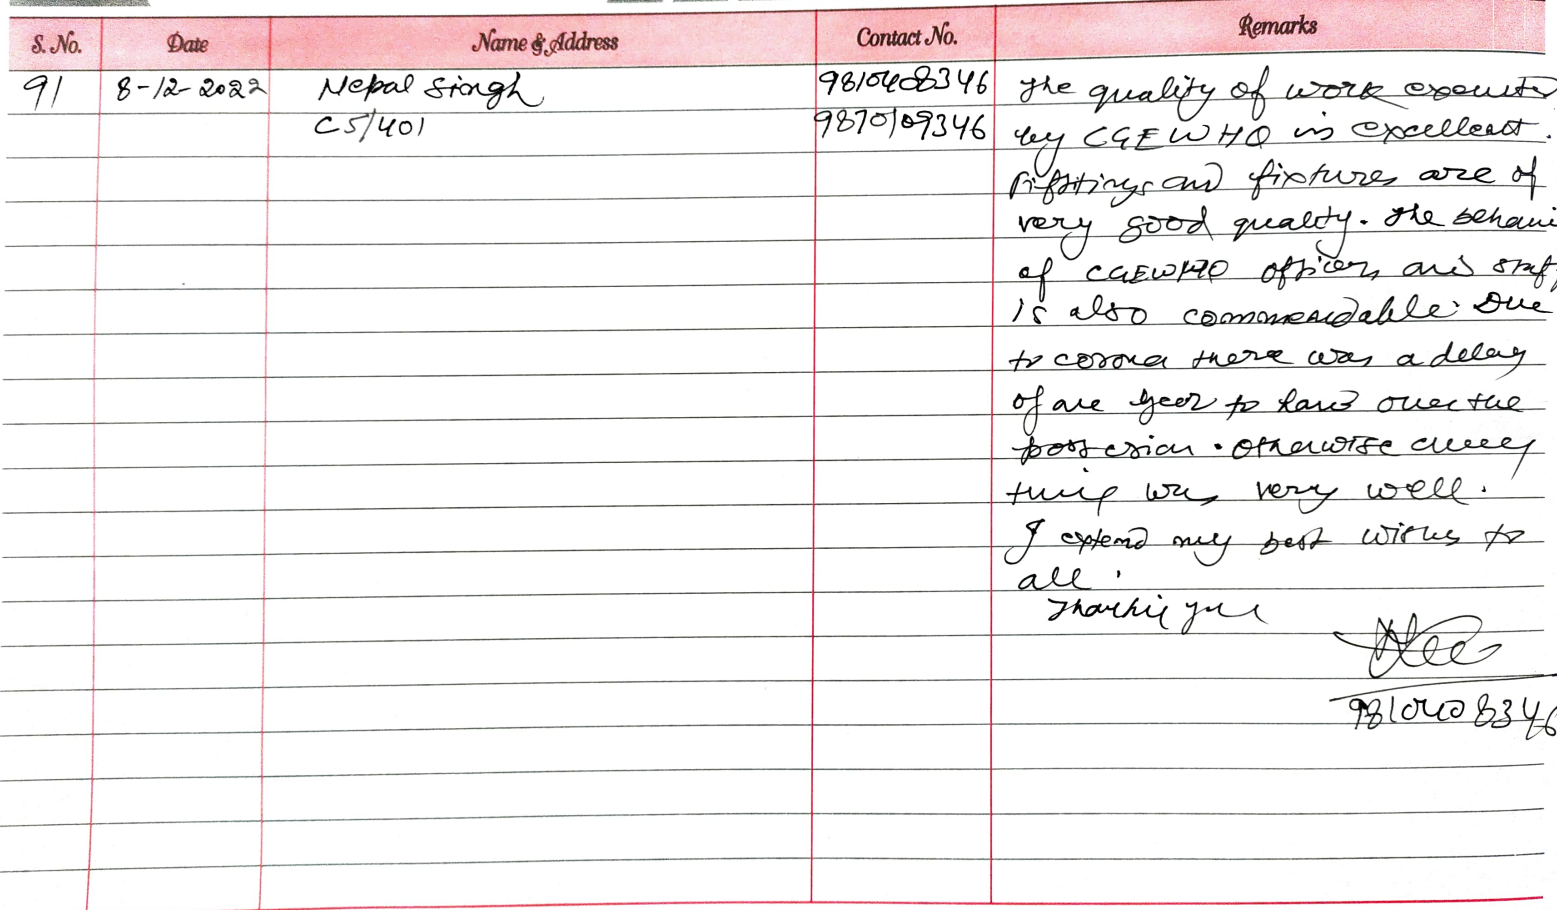 S. No. Date Name & Address Contact No. Remarks
91 8-12-2022 Nepal Singh 9810408346 The quality of work executed
C5/401 9870109346 by CGEWHO is excellent.
Fifttings and fixtures are of
very good quality. The behavi
of CGEWHO officers and staff
is also commendable. Due
to corona there was a delay
of one year to hand over the
possesion. Otherwise every
thing was very well.
I extend my best wishes to
all.
Thanking you
9810408346